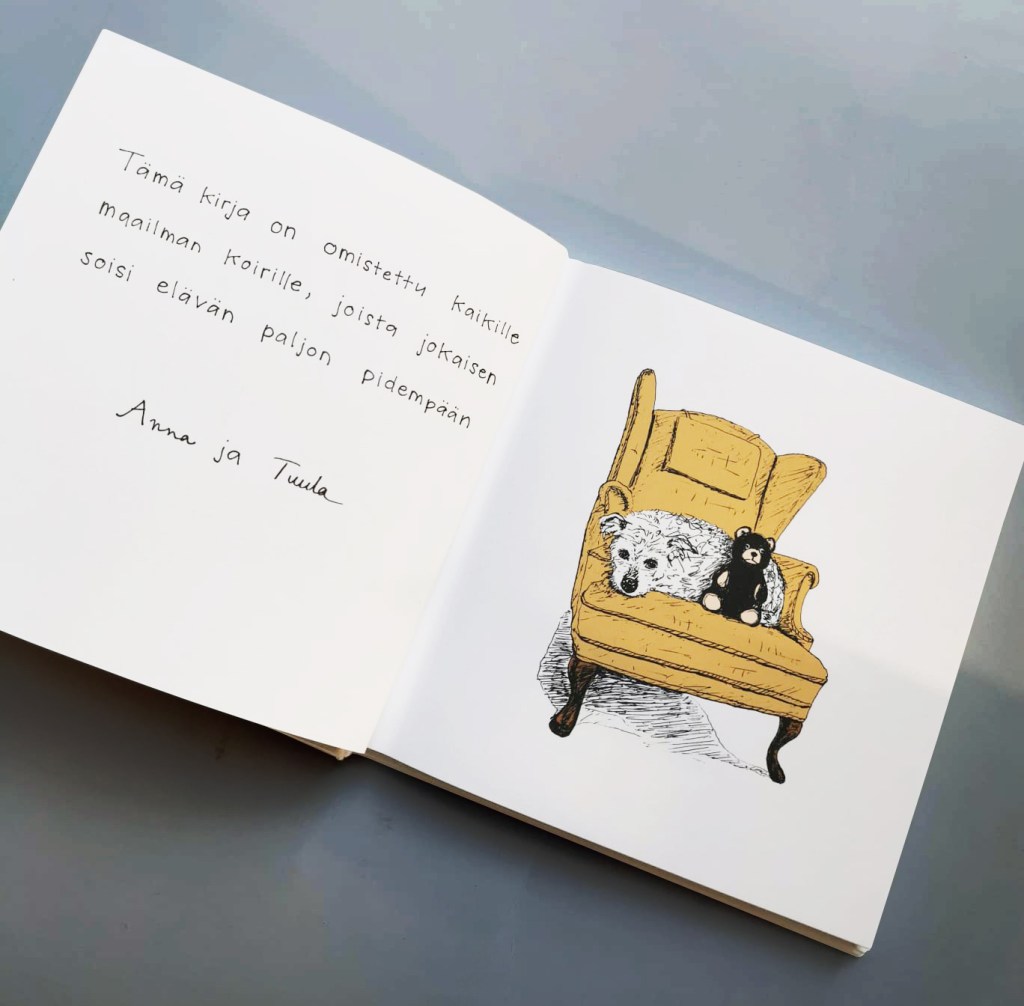 Tämä kirja on omistettu kaikille
maailman koirille, joista jokaisen
soisi elävän paljon pidempään
Anna ja Tuula